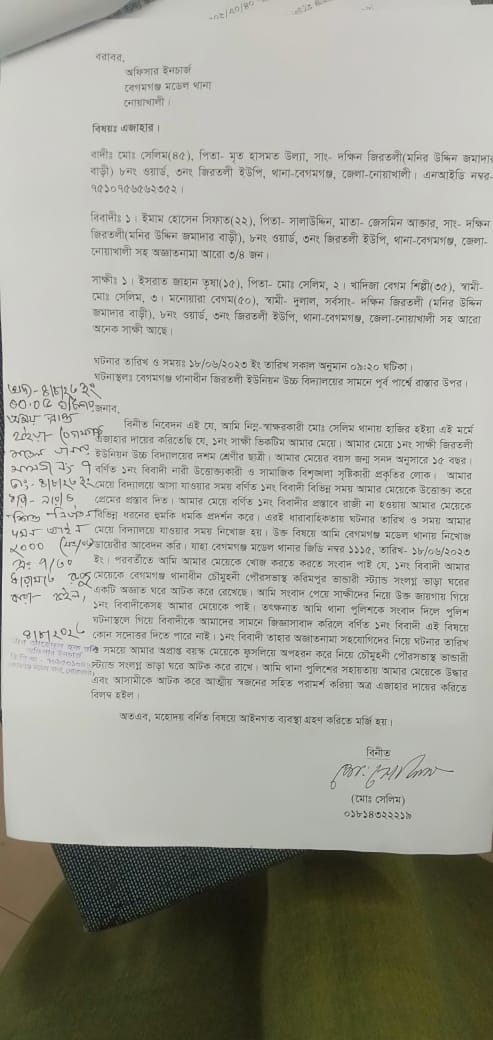 বরাবর,
অফিসার ইনচার্জ
বেগমগঞ্জ মডেল থানা
নোয়াখালী।
বিষয়ঃ এজাহার।
বাদীঃ মোঃ সেলিম(৪৫), পিতা- মৃত হাসমত উল্যা, সাং- দক্ষিন জিরতলী(মনির উদ্দিন জমাদার
বাড়ী) ৮নং ওয়ার্ড, ৩নং জিরতলী ইউপি, থানা-বেগমগঞ্জ, জেলা-নোয়াখালী। এনআইডি নম্বর-
৭৫১০৭৪৬৫৬২৩৫২।
বিবাদীঃ ১। ইমাম হোসেন সিফাত(২২), পিতা- সালাউদ্দিন, মাতা- জেসমিন আক্তার, সাং- দক্ষিন
জিরতলী(মনির উদ্দিন জমাদার বাড়ী), ৮নং ওয়ার্ড, ৩নং জিরতলী ইউপি, থানা-বেগমগঞ্জ, জেলা-
নোয়াখালী সহ অজ্ঞাতনামা আরো ৩/৪ জন।
সাক্ষীঃ ১। ইসরাত জাহান তৃষা(১৫), পিতা- মোঃ সেলিম, ২। খাদিজা বেগম শিল্পী(৩৫), স্বামী-
মোঃ সেলিম, ৩। মনোয়ারা বেগম(৫০), স্বামী- দুলাল, সর্বসাং- দক্ষিন জিরতলী (মনির উদ্দিন
জমাদার বাড়ী), ৮নং ওয়ার্ড, ৩নং জিরতলী ইউপি, থানা-বেগমগঞ্জ, জেলা-নোয়াখালী সহ আরো
অনেক সাক্ষী আছে।
ঘটনার তারিখ ও সময়ঃ ১৮/০৬/২০২৩ ইং তারিখ সকাল অনুমান ০৯:২০ ঘটিকা।
ঘটনাস্থলঃ বেগমগঞ্জ থানাধীন জিরতলী ইউনিয়ন উচ্চ বিদ্যালয়ের সামনে পূর্ব পার্শ্বে রাস্তার উপর।
জনাব,
বিনীত নিবেদন এই যে, আমি নিম্ন-স্বাক্ষরকারী মোঃ সেলিম থানায় হাজির হইয়া এই মর্মে
এজাহার দায়ের করিতেছি যে, ১নং সাক্ষী ভিকটিম আমার মেয়ে। আমার মেয়ে ১নং সাক্ষী জিরতলী
ইউনিয়ন উচ্চ বিদ্যালয়ের দশম শ্রেণীর ছাত্রী। আমার মেয়ের বয়স জন্ম সনদ অনুসারে ১৫ বছর।
বর্ণিত ১নং বিবাদী নারী উত্তোক্তকারী ও সামাজিক বিশৃঙ্খলা সৃষ্টিকারী প্রকৃতির লোক। আমার
মেয়ে বিদ্যালয়ে আসা যাওয়ার সময় বর্ণিত ১নং বিবাদী বিভিন্ন সময় আমার মেয়েকে উত্তোক্ত করে
প্রেমের প্রস্তাব দিত। আমার মেয়ে বর্ণিত ১নং বিবাদীর প্রস্তাবে রাজী না হওয়ায় আমার মেয়েকে
বিভিন্ন ধরনের হুমকি ধমকি প্রদর্শন করে। এরই ধারাবাহিকতায় ঘটনার তারিখ ও সময় আমার
মেয়ে বিদ্যালয়ে যাওয়ার সময় নিখোজ হয়। উক্ত বিষয়ে আমি বেগমগঞ্জ মডেল থানায় নিখোজ
ডায়েরীর আবেদন করি। যাহা বেগমগঞ্জ মডেল থানার জিডি নম্বর ১১১৫, তারিখ- ১৮/০৬/২০২৩
ইং। পরবর্তীতে আমি আমার মেয়েকে খোজ করতে করতে সংবাদ পাই যে, ১নং বিবাদী আমার
মেয়েকে বেগমগঞ্জ থানাধীন চৌমুহনী পৌরসভাস্থ করিমপুর ভান্ডারী স্ট্যান্ড সংলগ্ন ভাড়া ঘরের
একটি অজ্ঞাত ঘরে আটক করে রেখেছে। আমি সংবাদ পেয়ে সাক্ষীদের নিয়ে উক্ত জায়গায় গিয়ে
১নং বিবাদীকেসহ আমার মেয়েকে পাই। তৎক্ষনাত আমি থানা পুলিশকে সংবাদ দিলে পুলিশ
ঘটনাস্থলে গিয়ে বিবাদীকে আমাদের সামনে জিজ্ঞাসাবাদ করিলে বর্ণিত ১নং বিবাদী এই বিষয়ে
কোন সদোত্তর দিতে পারে নাই। ১নং বিবাদী তাহার অজ্ঞাতনামা সহযোগিদের নিয়ে ঘটনার তারিখ
ও সময়ে আমার অপ্রাপ্ত বয়স্ক মেয়েকে ফুসলিয়ে অপহরন করে নিয়ে চৌমুহনী পৌরসভাস্থ ভান্ডারী
স্ট্যান্ড সংলগ্ন ভাড়া ঘরে আটক করে রাখে। আমি থানা পুলিশের সহায়তায় আমার মেয়েকে উদ্ধার
এবং আসামীকে আটক করে আত্মীয় স্বজনের সহিত পরামর্শ করিয়া অত্র এজাহার দায়ের করিতে
বিলম্ব হইল।
অতএব, মহোদয় বর্নিত বিষয়ে আইনগত ব্যবস্থা গ্রহণ করিতে মর্জি হয়।
বিনীত
(মোঃ সেলিম)
০১৮১৪৩২২২১৯